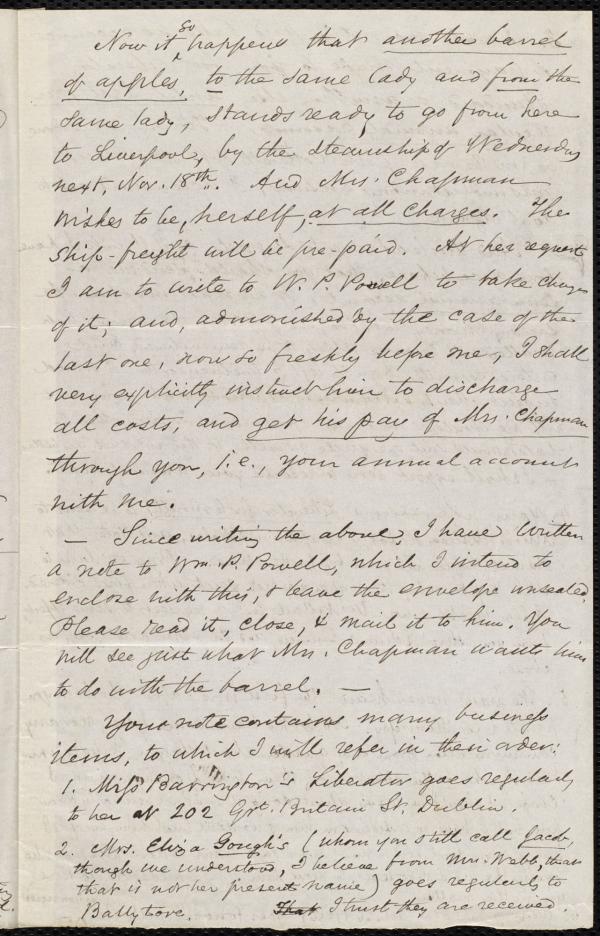 Now it so happens that another barrel
of apples, to the same lady and from the
same lady, stands ready to go from here
to Liverpool, by the steamship of Wednesday
next, Nov. 18th. And Mrs. Chapman
wishes to be, herself, at all charges. The
ship-freight will be pre-paid. At her request
I am to write to W. P. Powell to take charge
of it; and, admonished by the case of the
last one, now so freshly before me, I shall
very explicitly instruct him to discharge
all costs, and get his pay of Mrs. Chapman
through you, i.e., your annual account
with me.
— Since writing the above, I have written
a note to Wm. P. Powell, which I intend to
enclose with this, & leave the envelope unsealed.
Please read it, close, & mail it to him. You
will see just what Mrs. Chapman wants him
to do with the barrel. —
Your note contains many business
items, to which I will refer in their order:
1. Miss Barrington's Liberator goes regularly
to her at 202 Grt. Britain St. Dublin.
2. Mrs. Eliza Gough's (whom you still call Jacob,
though we understood, I believe from Mrs. Webb, that
that is not her present name) goes regularly to
Ballytore. That I trust they are received.